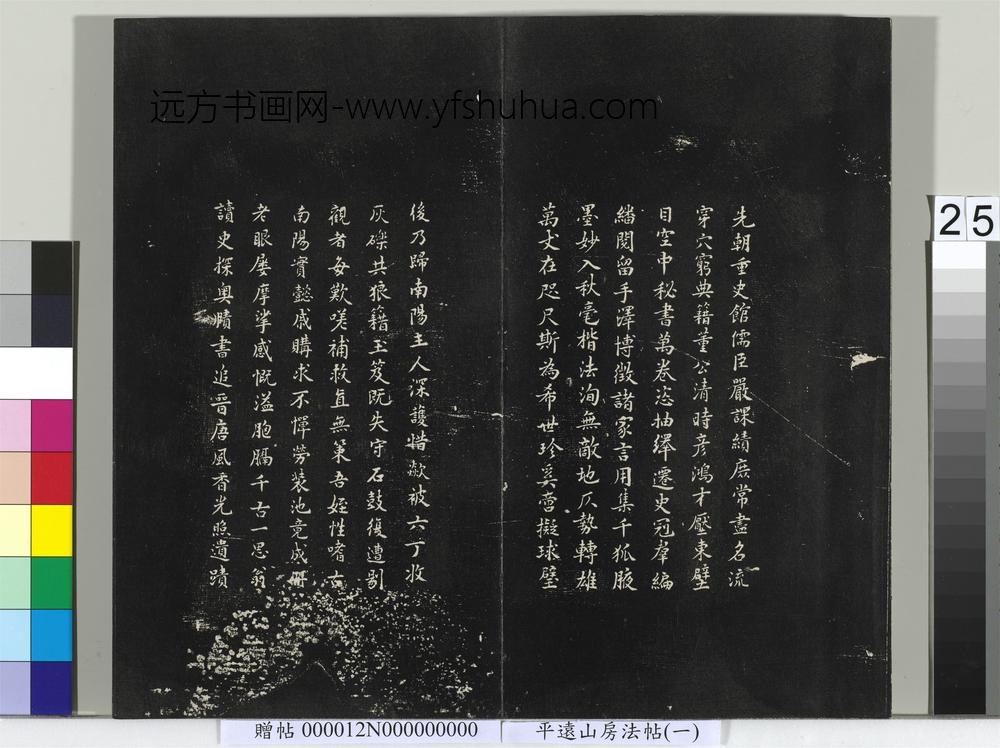 远方书画网-www.yfshuhua.com
25
先朝重史館儒臣嚴課績庶常盡名流
穿穴窮典籍董公清時彦鴻才壓東壁
目空中秘書萬卷恣抽繹遷史冠羣編
繙閱留手澤博徵諸家言用集千狐腋
墨妙入秋毫楷法洵無敵地仄勢轉雄
萬丈在咫尺斯為希世珍奚啻擬球璧
後乃歸南陽主人深護惜歘被六丁收
灰礫共狼籍玉笈既失守石鼓復遭剔
觀者每歎嗟補救直無策吾姪性嗜古
南陽實懿戚購求不憚勞裝池竟成冊
老眼屢摩挲感慨溢胞膈千古一思翁
讀史探奧賾書追晉唐風香光照遺蹟
贈帖 000012N000000000
平遠山房法帖(一)